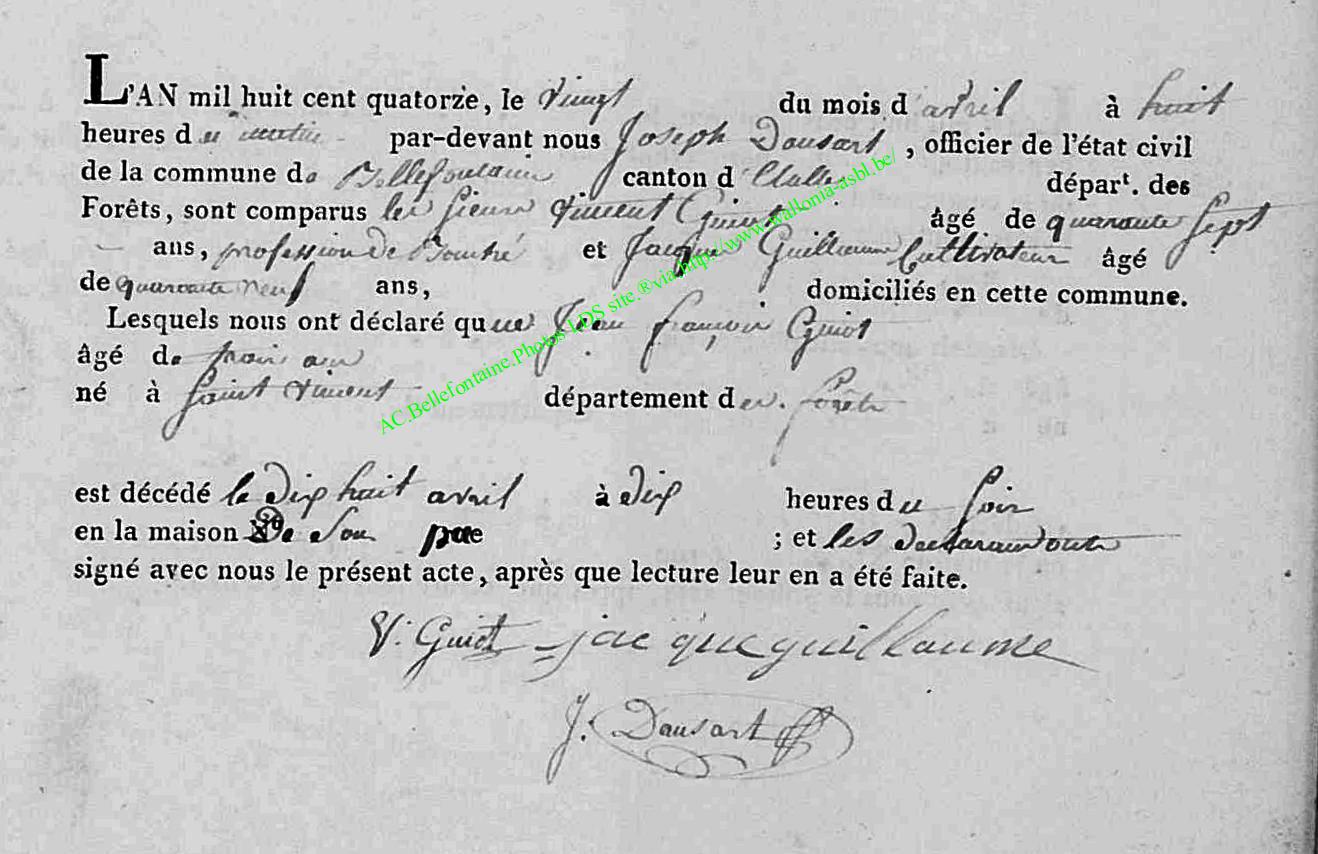 L'AN mil huit cent quatorze, le vingt du mois d'avril à huit
heures du matin par-devant nous Joseph Dausart, officier de l'état civil
de la commune de Bellefontaine canton d'Etalle départ. des
Forêts, sont comparus les sieurs Vincent Guiot âgé de quarante sept
ans, profession de et Jacque Guillaume Cultivateur âgé
de quarante neuf ans, domiciliés en cette commune.
Lesquels nous ont déclaré que Jean françois Guiot
âgé de trois ans
né à Saint Vincent département des forêts
est décédé le dix huit avril à dix heures du soir
en la maison de son pere ; et les declarans ont
signé avec nous le présent acte, après que lecture leur en a été faite.
V. Guiot jacque guillaume
J. Dausart
AC.Bellefontaine.Photos LDS site.®via http://www.wallonia-asbl.be/